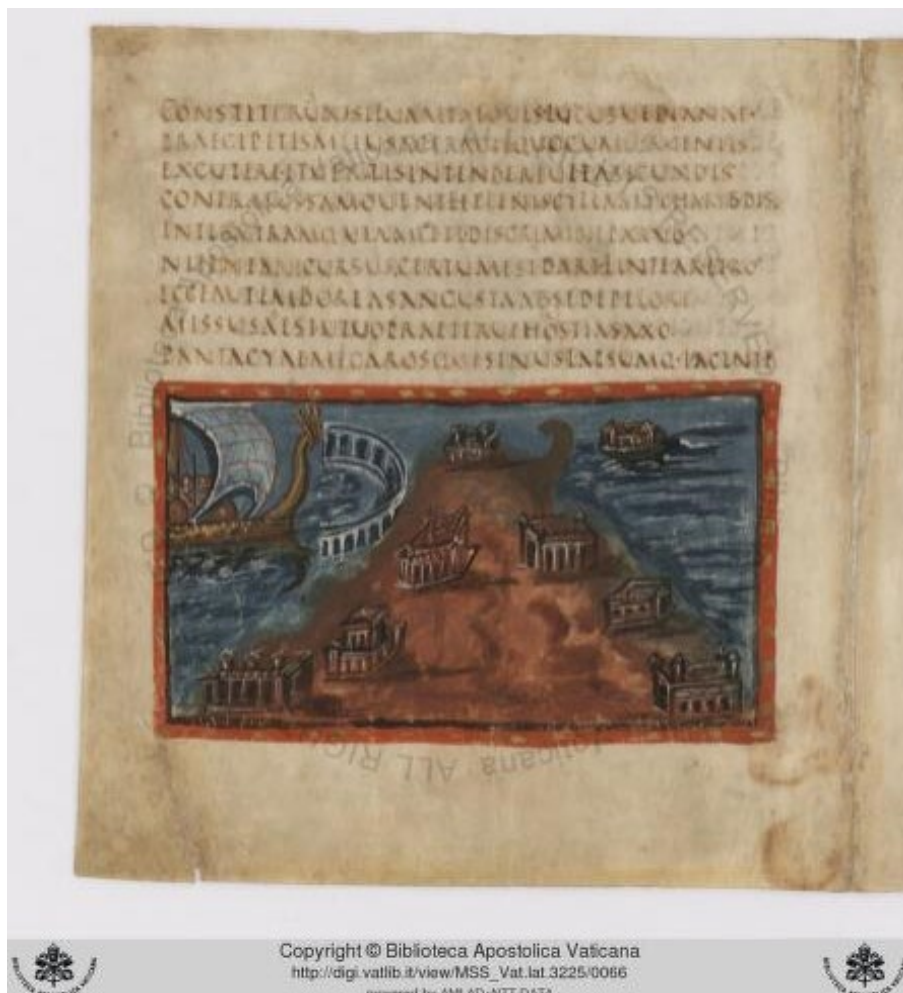 CONSTITERUNTSILUAALTAIOUISLUCUSUEDIANAE
PRAECIPITISMETUSACERAGITQUOCUMQ·RUDENTIS
EXCUTEREETUENTISINTENDEREUELASECUNDIS
CONTRAIUSSAMONENTHELENISCYLLAM CHARYBDIS
INTERUTRAMQUEUIAMLETIDISCRIMINEPARUO
NITENEANTCURSUSCERTUMESTDARELINTEARETRO
ECCEAUTEMBOREASANGUSTAABSEDEPELORI
MISSUSADESTUIUOPRAETERUEHOROSTIASAXO
MEGAROSQ·SINUS IACENTE
Copyright © Biblioteca Apostolica Vaticana
http://digi.vatlib.it/view/MSS_Vat.lat.3225/0066
powered by AMLAD+NTT DATA